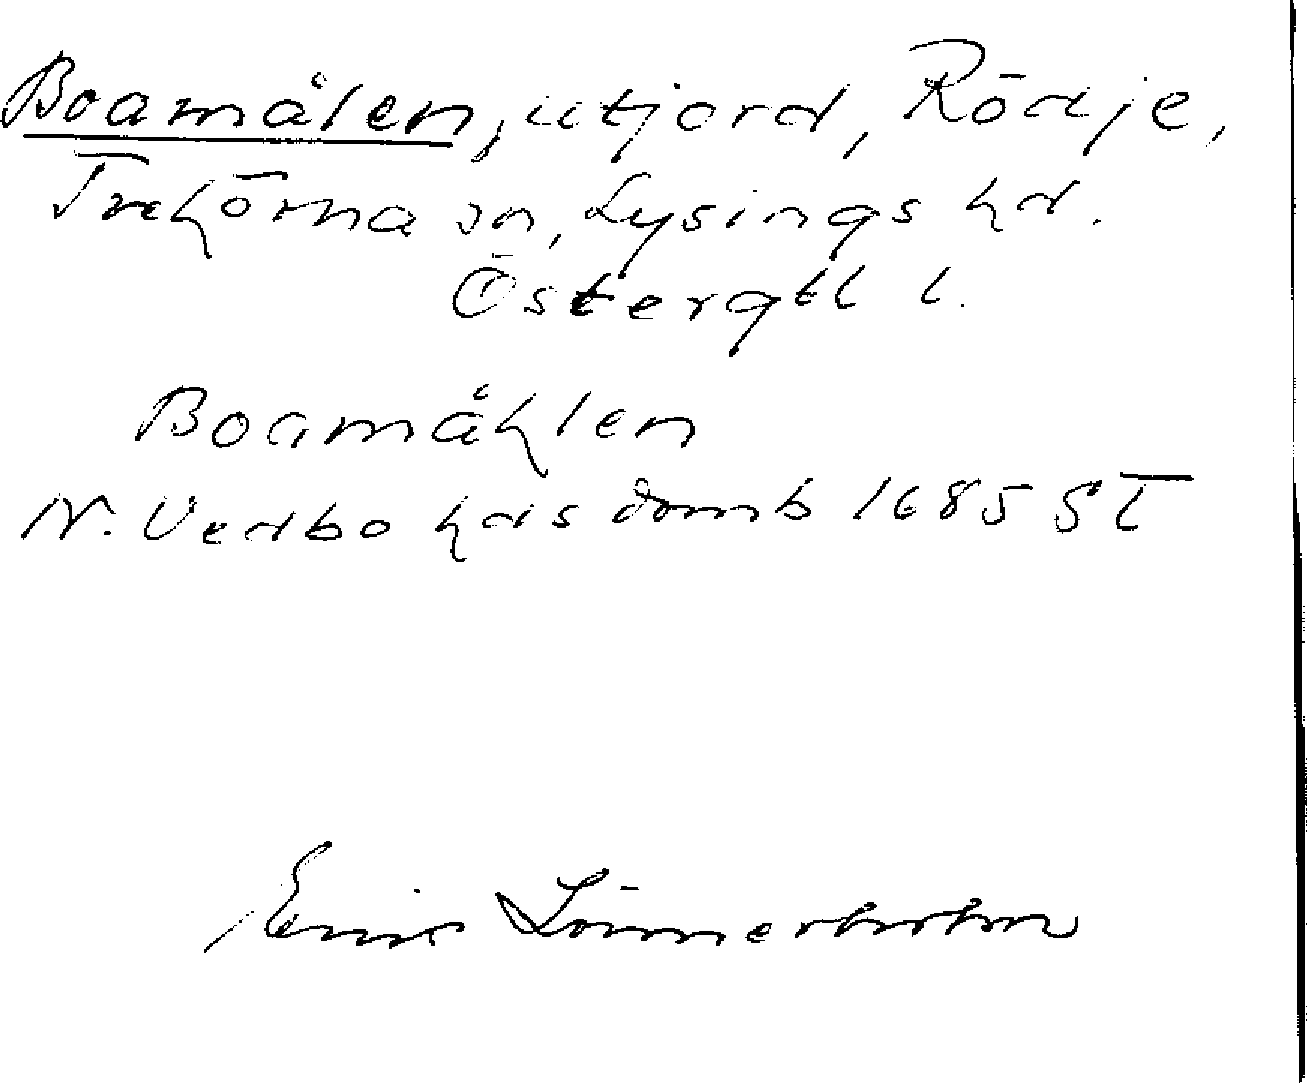 Boamålen, utjord, Rödje,
Trehörna sn, Lysings hd.
Östergtl l.
Boamåhlen
N. Vedbo hds domb 1685 ST
Erik Lönnerholm